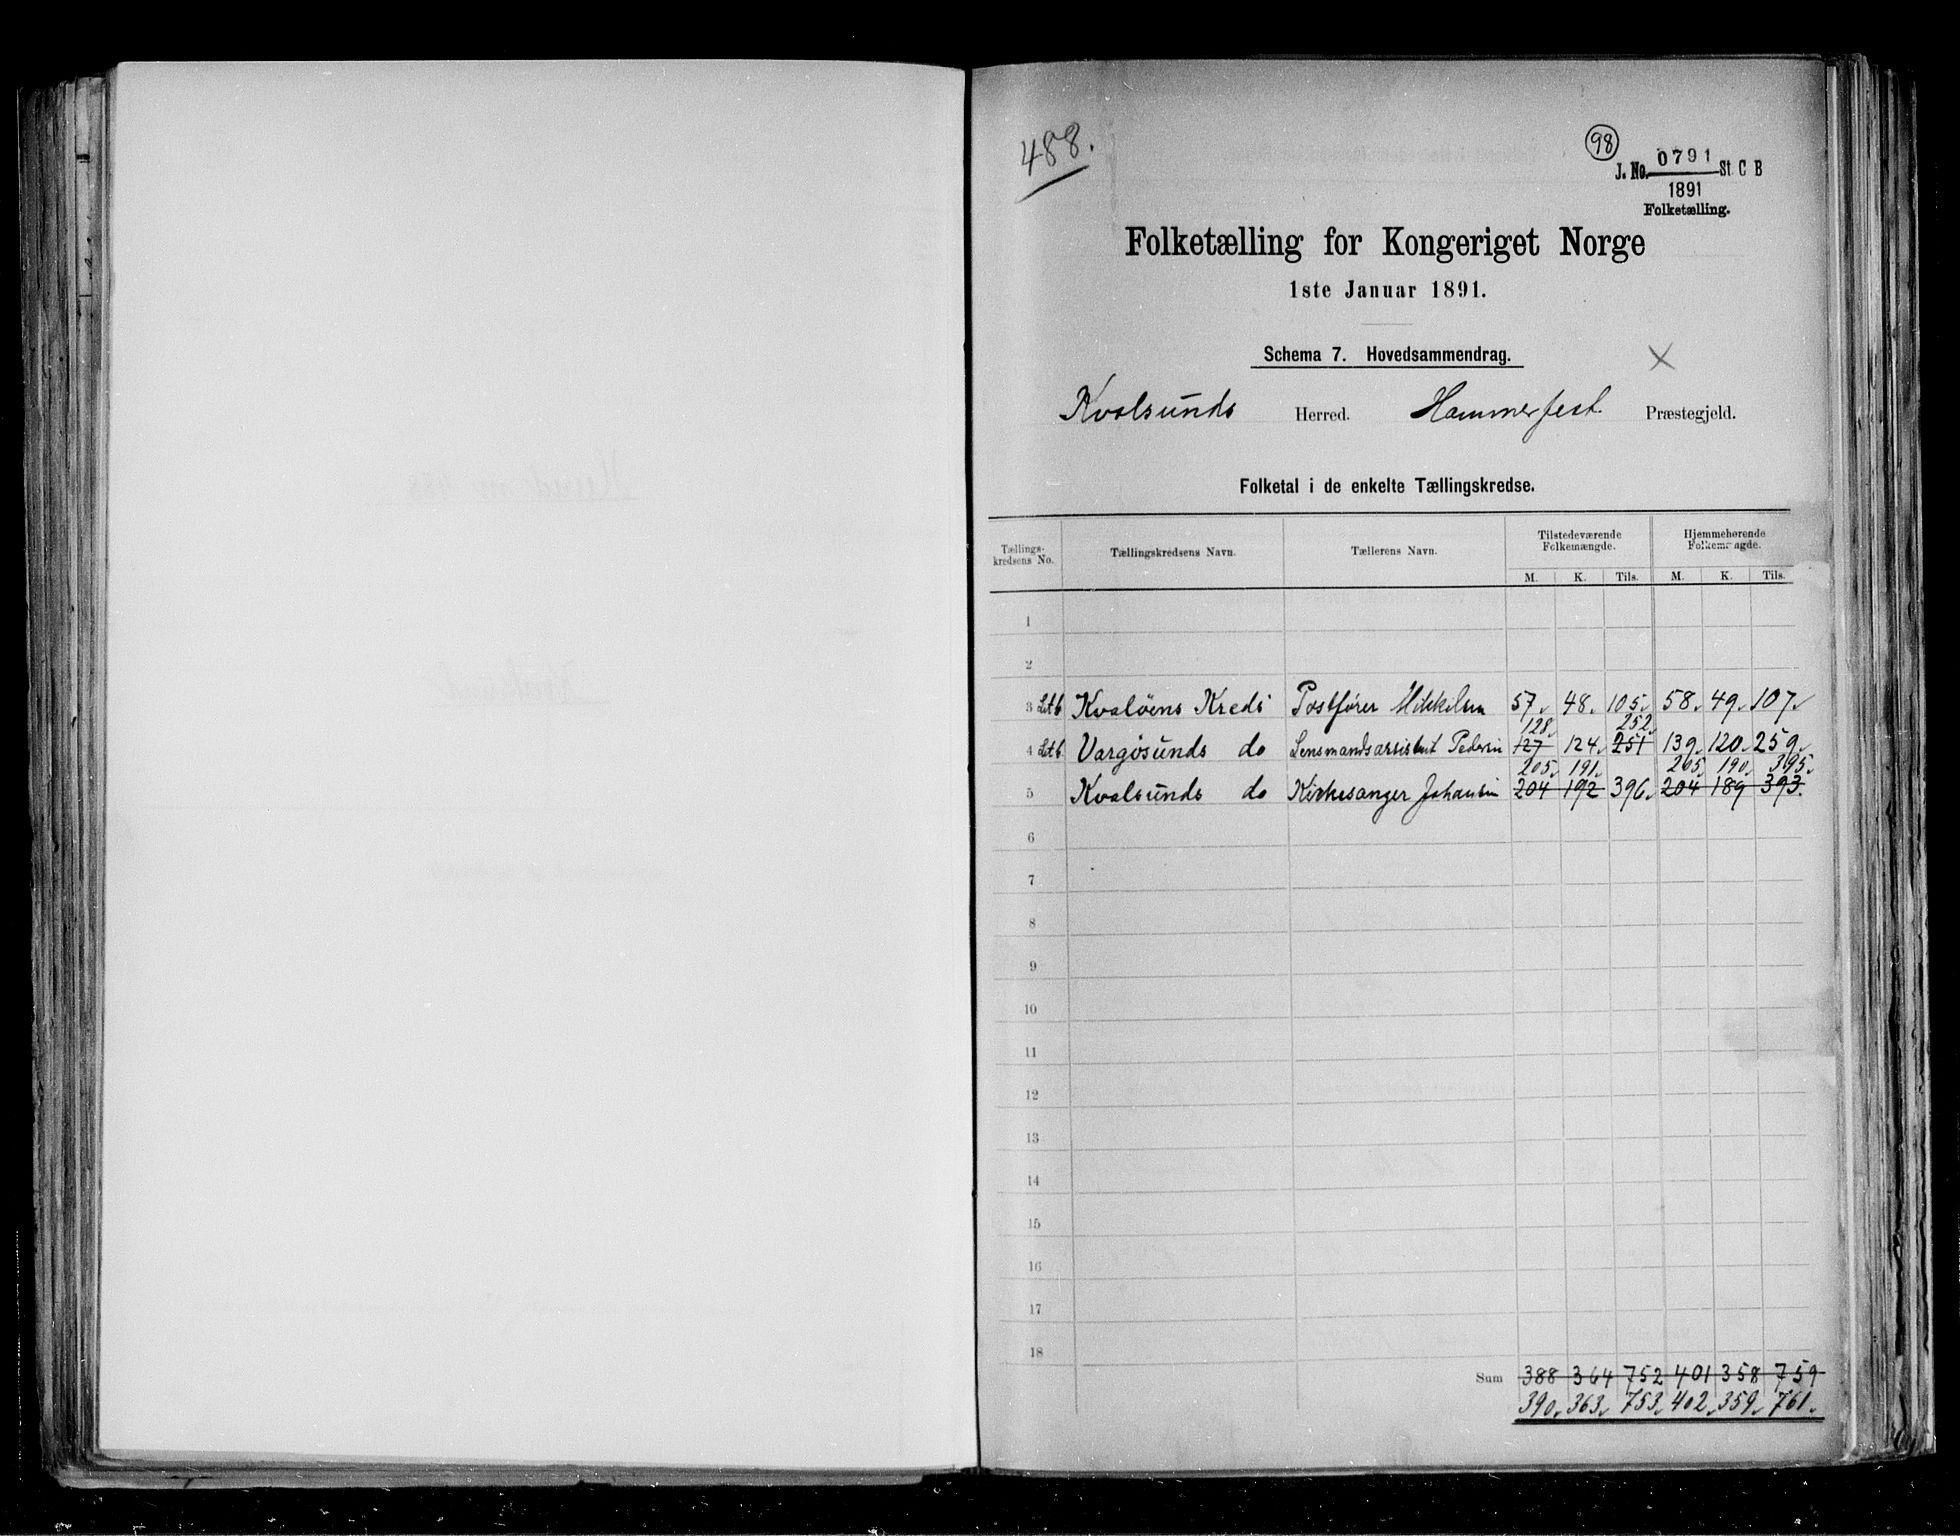 488.
98
J. No. 0791 St. C B
1891
Folketælling.
Folketælling for Kongeriget Norge
1ste Januar 1891.
Schema 7. Hovedsammendrag. X
Kvalsunds Herred. Hammerfest Præstegjeld.
Folketal i de enkelte Tællingskredse.
Tællings- kredsens No. Tællingskredsens Navn. Tællerens Navn. Tilstedeværende Folkemængde. Hjemmehørende Folkemængde.
M. K. Tils. M. K. Tils.
1
2
3 Litb Kvaløens Kreds Postfører Mikkelsen 57 48 105 58 49 107
128 252
4 Litb Vargøsunds do Lensmandsassistent Pedersen 127 124 251 139 120 259
205 191 205 190 395
5 Kvalsunds do Kirkesanger Johansen 204 192 396 204 189 393
6
7
8
9
10
11
12
13
14
15
16
17
18
Sum 388 364 752 401 358 759
390 363 753 402 359 761